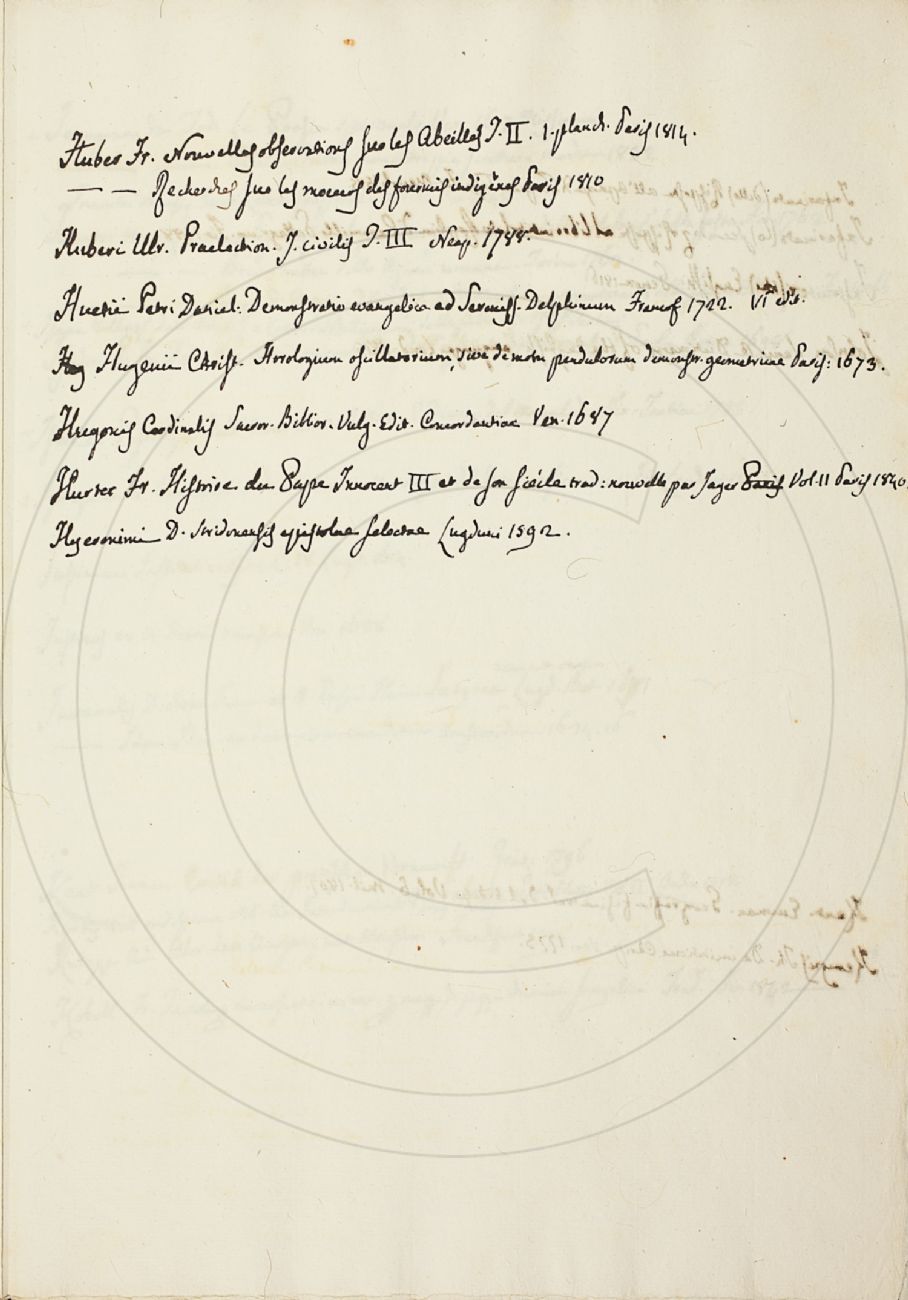 Huber Fr. Nouvelles observations sur les Abeilles T. II. 1. planch. Paris 1814.
— — Recherches sur les moeurs des fourmis indigènes Paris 1810
Huberi Ulr. Praelection. J. civilis T. III Neap. 1788.
Huetii Petri Daniel. Demonstratio evangelica ad Sereniss. Delphinum Francof 1722. VI edit.
Hugenii Christ. Horologium oscillatorium, sive de motu pendulorum demonstr. geometricae Paris: 1673.
Hugonis Cardinalis Sacror. Biblior. Vulg. Edit. Concordantiae Ven. 1687
Hurter Fr. Histoire du Pape Innocent III et de son siécle trad: nouvelle par Jager Paris Vol. II Paris 1840.
Hyeronimi D. Stridonensis epistolae selectae Lugduni 1592.